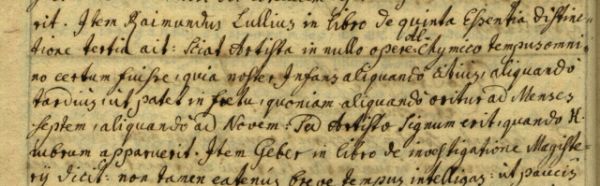 rit. Item Raimundus Lullius in libro de quinta Essentia distinc-
tione tertia ait: Sciat Artista in nullo opere Alchymico tempus omni
no certum fuisse, quia noster Infans aliquando citius, aliquandò
tardius, ut patet in fœtu, quoniam aliquandò oritur ad Menses
septem, aliquandò ad Novem: sed Artistæ Signum erit, quando
rubrum apparuerit. Item Geber in libro de investigatione Magiste-
rij dicit: non tamen eatenùs breve tempus intelligas: ut paucis